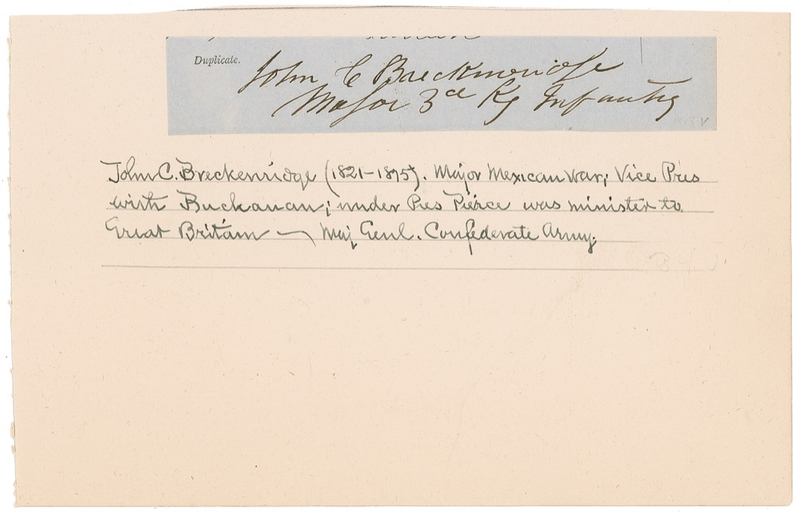 Duplicate.
John C Breckinridge
Major 3d Ky Infantry
John C. Breckenridge (1821-1875). Major Mexican War; Vice Pres
with Buchanan; under Pres Pierce was minister to
Great Britain — Maj Genl. Confederate Army.